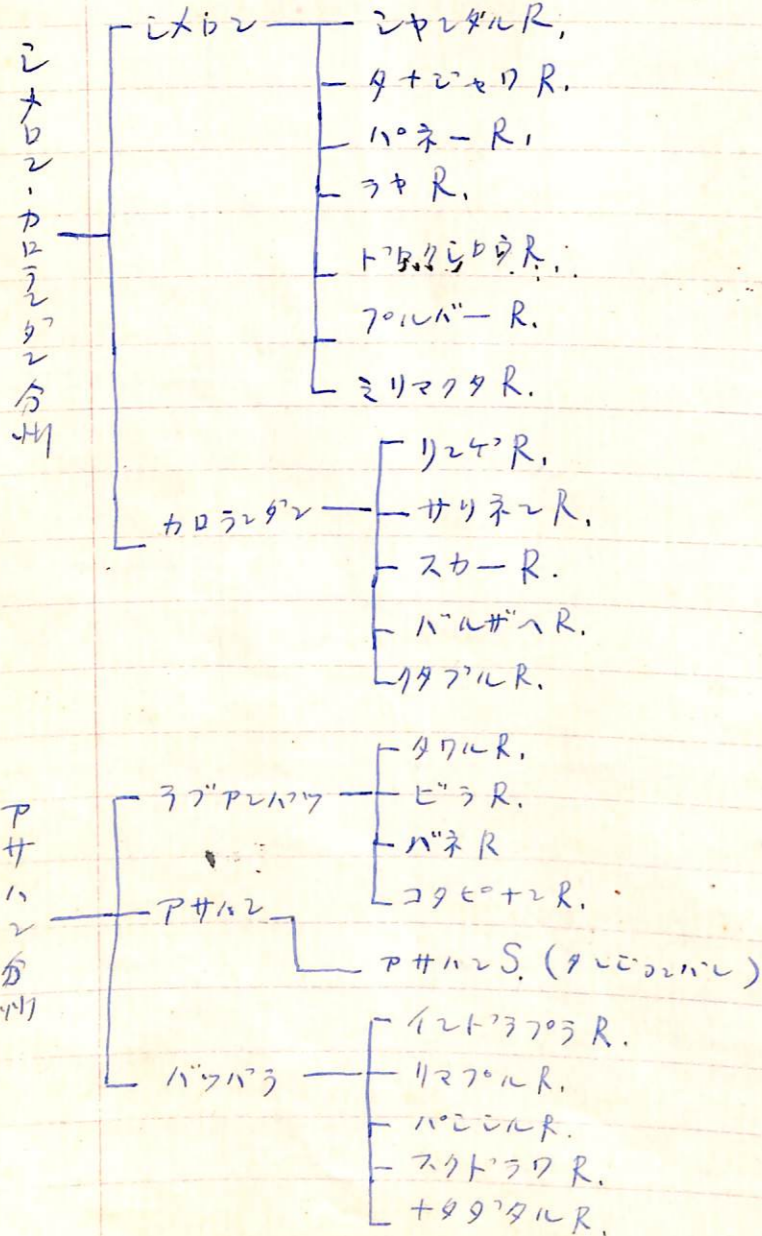 シメロン・カロランダン分州
シメロン
シヤンダルR.
タナジャワR.
パネーR.
ラヤR.
ドロクシロウR.
プルバーR.
ミリマクタR.
カロランダン
リンゲR.
サリネンR.
スカーR.
バルザヘR.
クタブルR.
アサハン分州
ラブアンバツ
タワルR.
ビラR.
バネR
コタピナンR.
アサハン
アサハンS.(タンジョンバレ)
バツバラ
インドラプラR.
リマプルR.
パシシルR.
スクドラワR.
ナタダタルR.